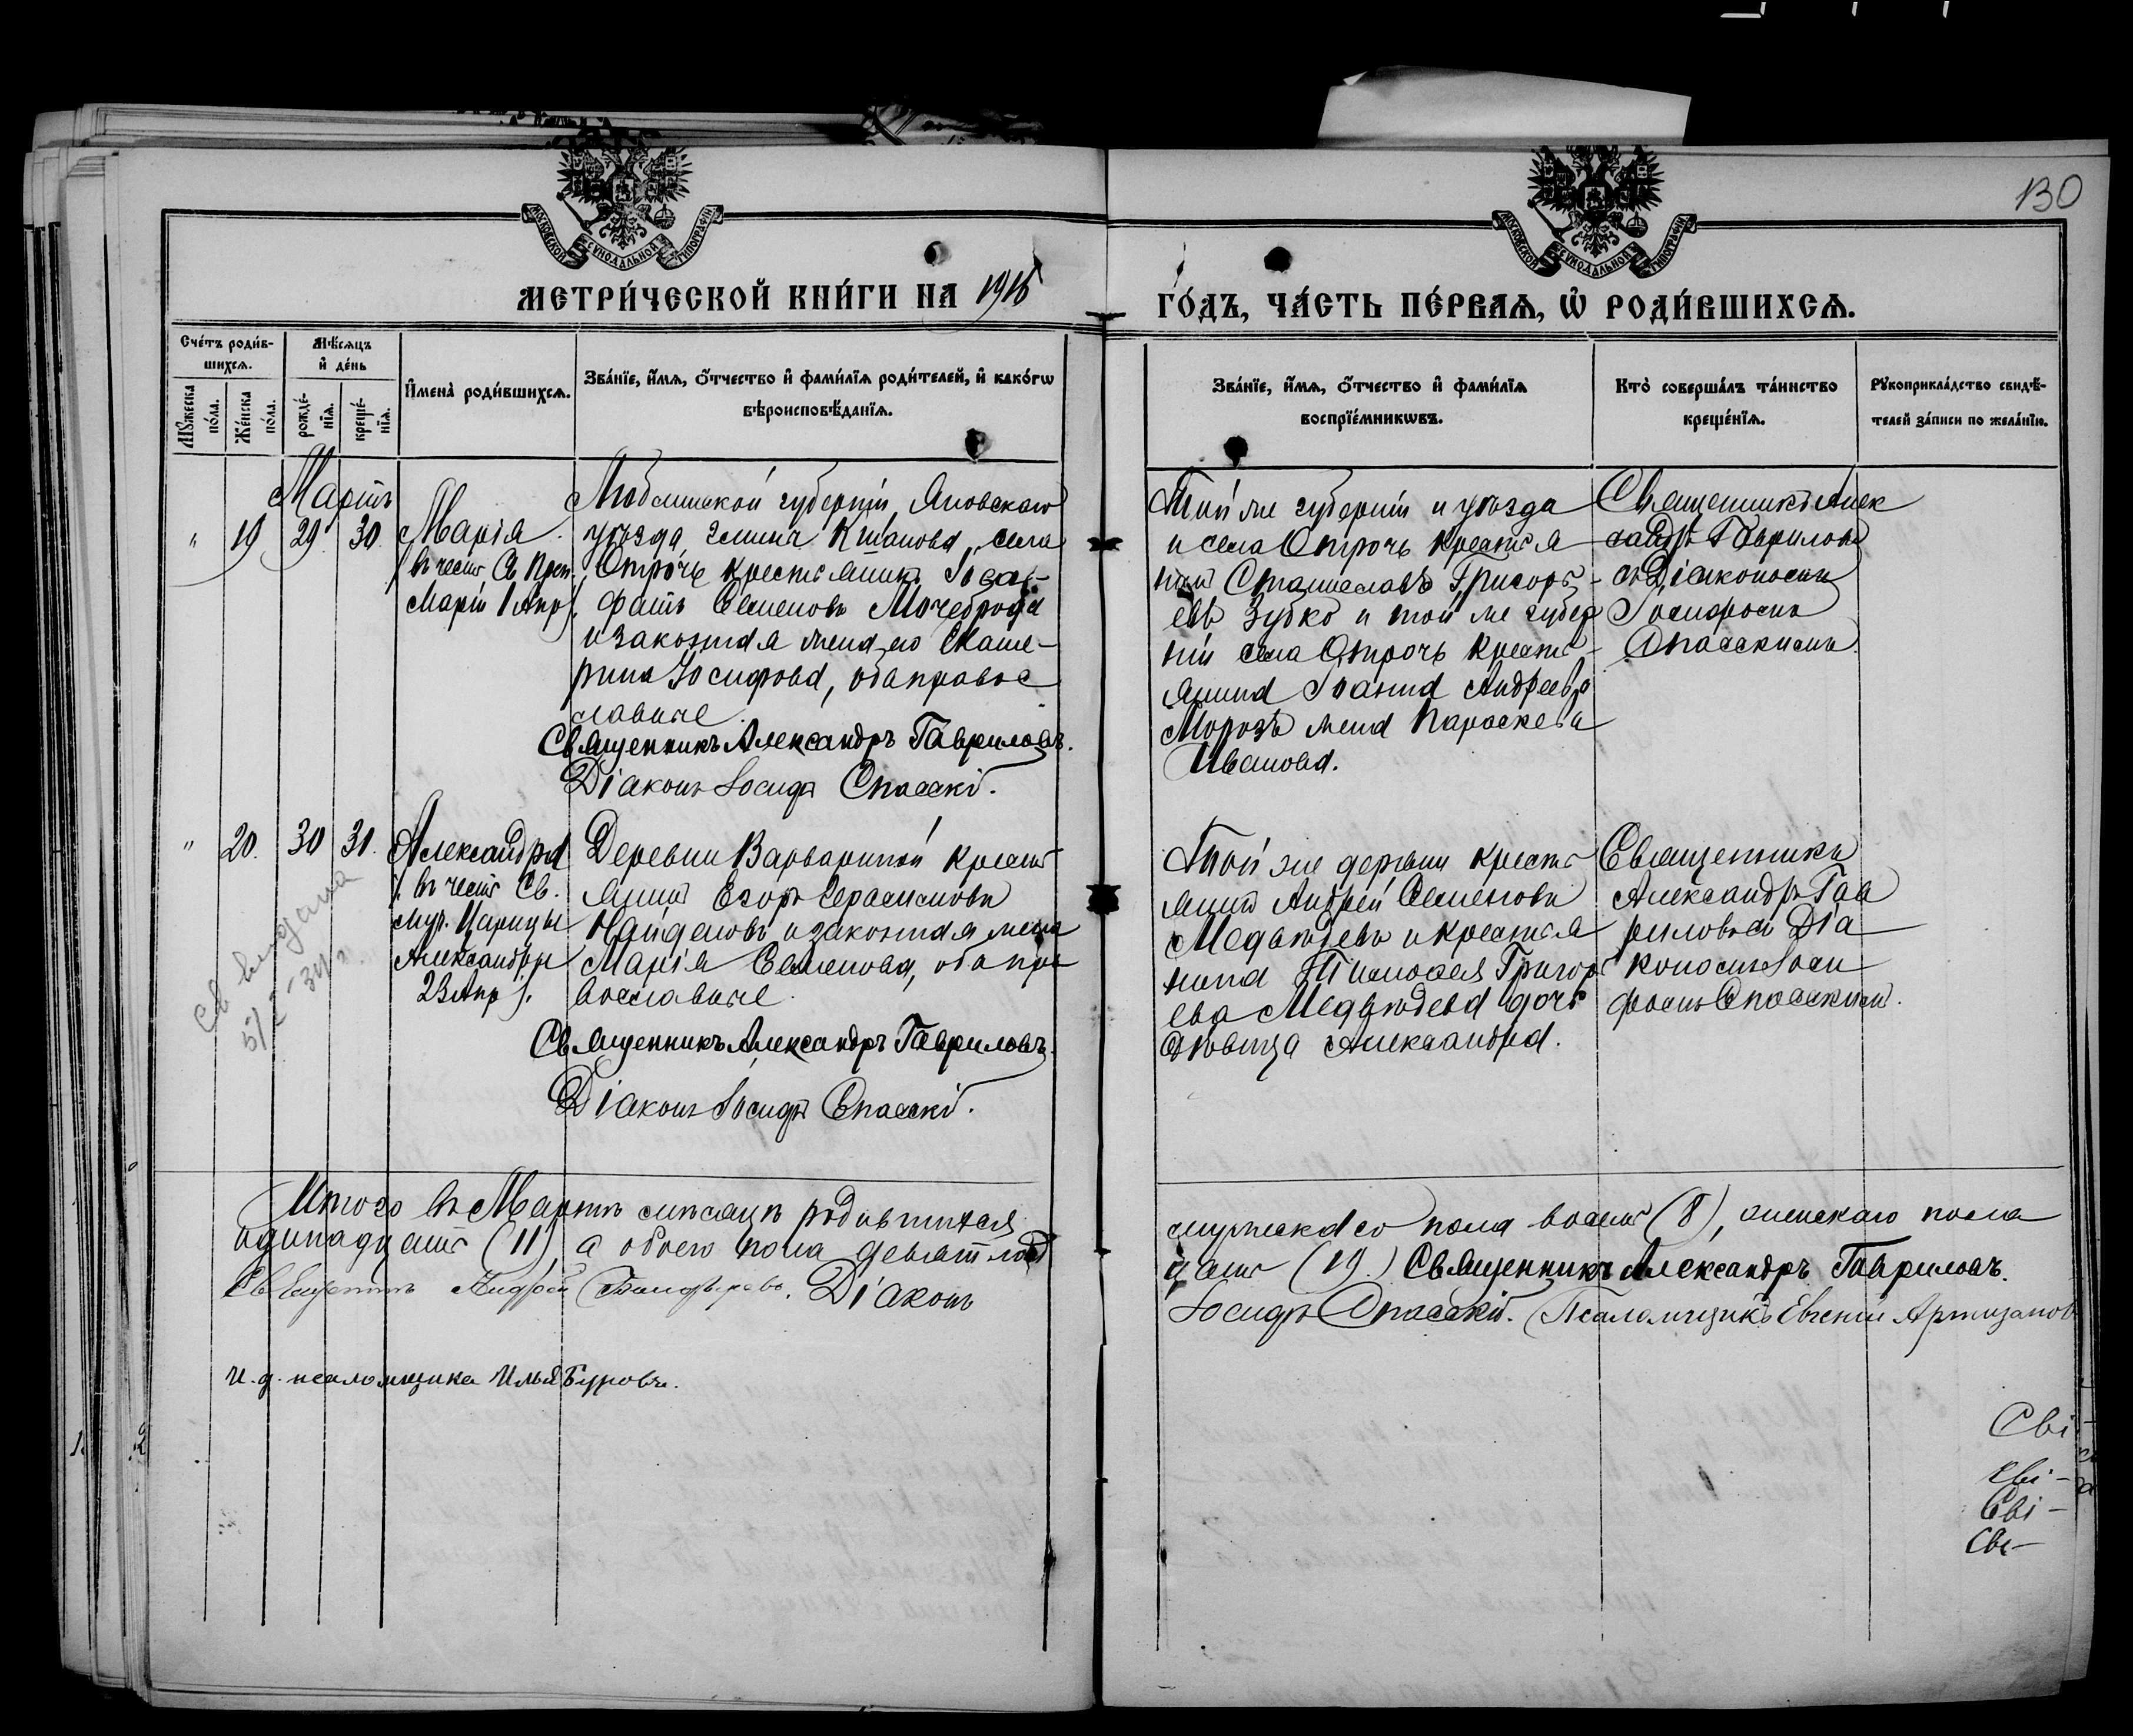 130
МОСКОВСКОЙ СУНОДАЛЬНОЙ ТИПОГРАФІИ
МОСКОВСКОЙ СУНОДАЛЬНОЙ ТИПОГРАФІИ
МЕТРИ́ЧЕСКОЙ КНИ́ГИ НА 1916
ГО́ДЪ, ЧА́СТЬ ПЕ́РВАѦ, Ѡ҆ РОДИ́ВШИХСѦ.
Сче́тъ роди́в-
шихсѧ.
Мꙋ́жеска по́ла.
Же́нска по́ла.
Мѣ́сѧцъ
и҆ де́нь
рожде́-нїѧ.
креще́-нїѧ.
И҆мена̀ роди́вшихсѧ.
Зва́нїе, и҆́мѧ, ѻ҆́тчество и҆ фами́лїѧ роди́телей, и҆ како́гѡ
вѣроисповѣ́данїѧ.
Зва́нїе, и҆́мѧ, ѻ҆́тчество и҆ фами́лїѧ
воспрїе́мникѡвъ.
Кто̀ соверша́лъ та́инство
креще́нїѧ.
Рꙋкоприкла́дство свидѣ́-
телей за́писи по жела́нїю.
Мартъ
" 19 29 30
Марія
въ честь Св. Преп.
Маріи 1 Апр.
Люблинской губерніи Яновскаго
уѣзда, гмины села
Отрочь крестьянинъ Іоса-
фатъ Семеновъ
и законная жена его Екате-
рина Іосифова, оба право-
славные
Священникъ Александръ Гавриловъ.
Діаконъ Іосифъ Спасскій.
Той же губерніи и уѣзда
и села Отрочь крестья
нинъ Станиславъ Григорь-
евъ Зубко и той же губер
ніи села Отрочь крестья-
янина Іоанна Андреева
Морозъ жена Параскева
Иванова.
Священникъ Алек
сандръ Гавриловъ
съ Діакономъ
Іосифомъ
Спасскимъ.
" 20. 30 31.
Александра
въ честь Св.
муч. Царицы
Александры
23 Апр.
Деревни Варвариной кресть
янинъ Егоръ Герасимовъ
Найденовъ и законная жена
Марія Семенова, оба пра
вославные
Священникъ Александръ Гавриловъ.
Діаконъ Іосифъ Спасскій.
Той же деревни кресть
янинъ Андрей Семеновъ
Медвѣдевъ и крестья
нина Григорь
ева Медвѣдева дочь
дѣвица Александра.
Священникъ
Александръ Гав
риловъ съ Діа
кономъ Іоси
фомъ Спасскимъ.
Св выдана
Итого въ Мартѣ мѣсяцѣ родившихся
мужескаго пола восемь (8), женскаго пола
одинадцать (11), а обоего пола девятнад
цать (19.) Священникъ Александръ Гавриловъ.
Священникъ Андрей Діаконъ
Іосифъ Спасскій. Псаломщикъ Евгеній
И. д. псаломщика Илья Буровъ.
Сві
Сві-
Сві-
Сві-